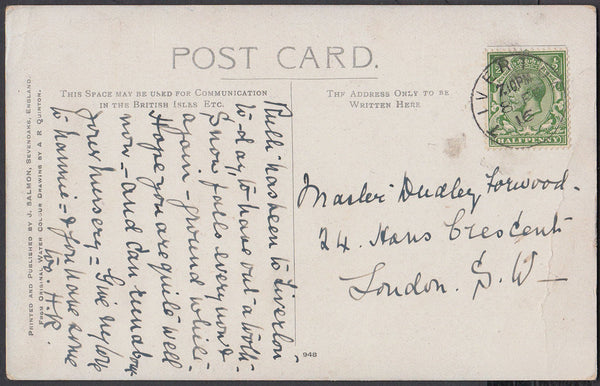 POST CARD.
THIS SPACE MAY BE USED FOR COMMUNICATION
IN THE BRITISH ISLES ETC.
THE ADDRESS ONLY TO BE
WRITTEN HERE
PRINTED AND PUBLISHED BY J. SALMON, SEVENOAKS, ENGLAND.
FROM ORIGINAL WATER COLOUR DRAWING BY A. R. QUINTON.
has been to Tiverton
to-day, to have out a tooth -
Snow falls every now &
again - ground white -
Hope you are quite well
now - and can run about
your nursery - Give my love
to Nannie - & you have some
too. H.R.
Master Dudley Forwood -
24. Hans Crescent
London. S.W -
TIVER
7.0PM
16
HALFPENNY
948